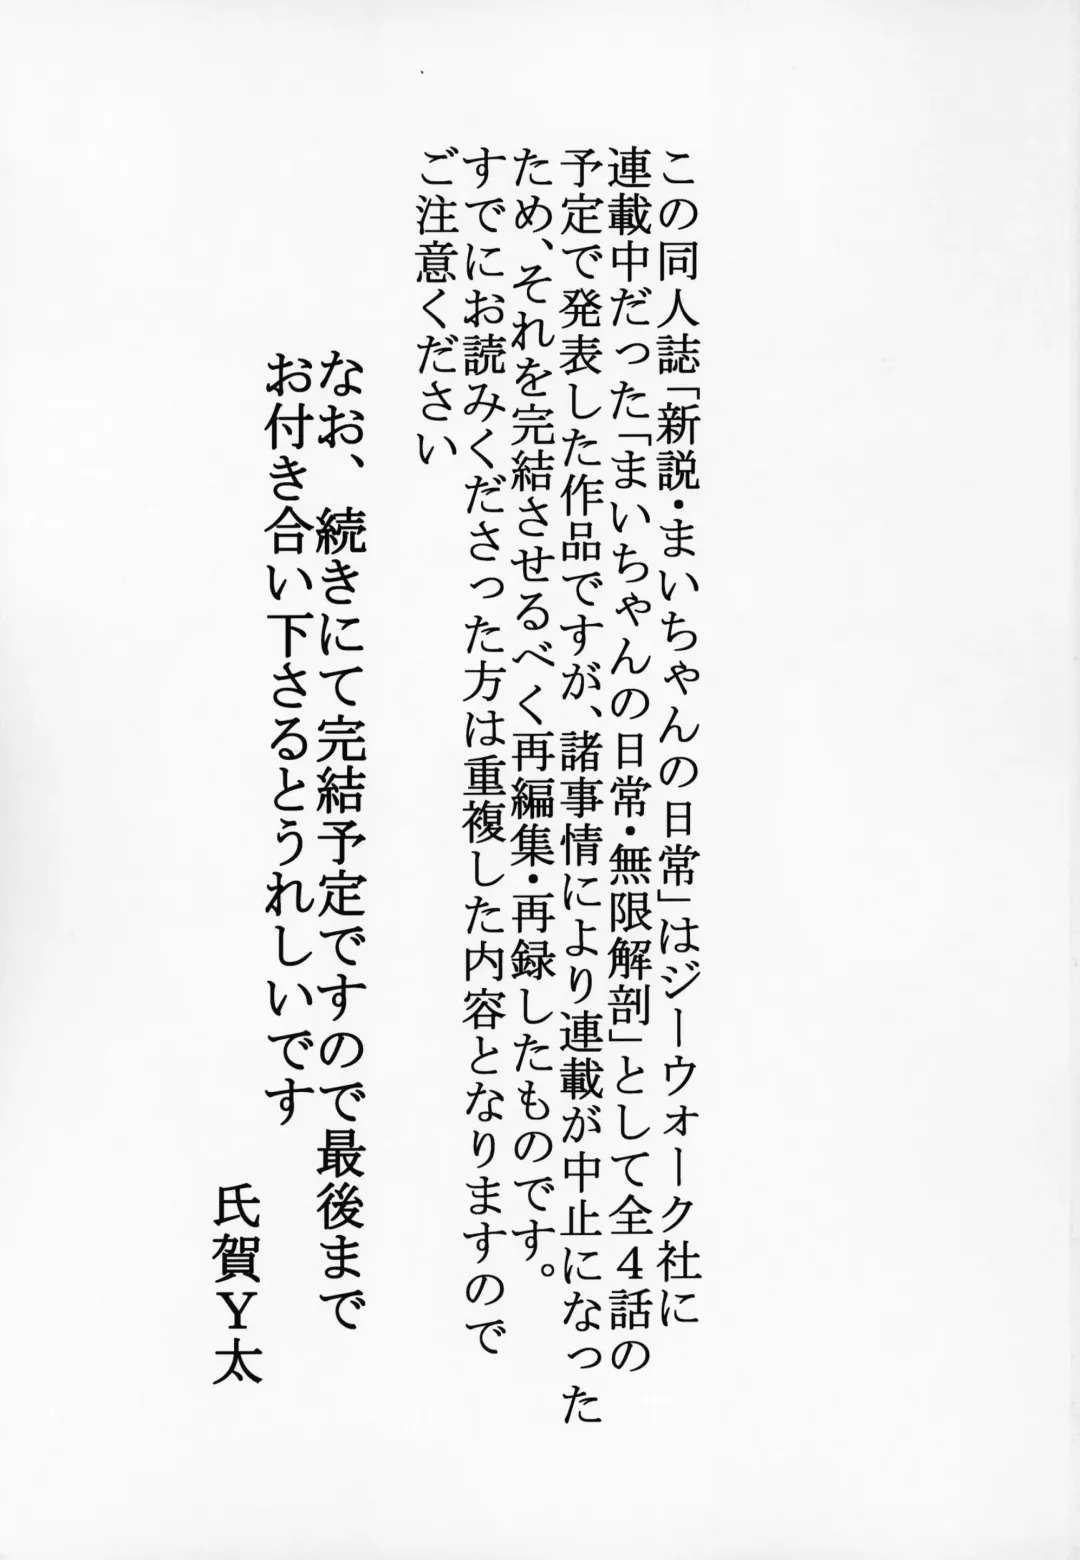 この同人誌「新説・まいちゃんの日常」はジーウォーク社に
連載中だった「まいちゃんの日常・無限解剖」として全４話の
予定で発表した作品ですが、諸事情により連載が中止になった
ため、それを完結させるべく再編集・再録したものです。
すでにお読みくださった方は重複した内容となりますので
ご注意ください
なお、続きにて完結予定ですので最後まで
お付き合い下さるとうれしいです
氏賀Ｙ太